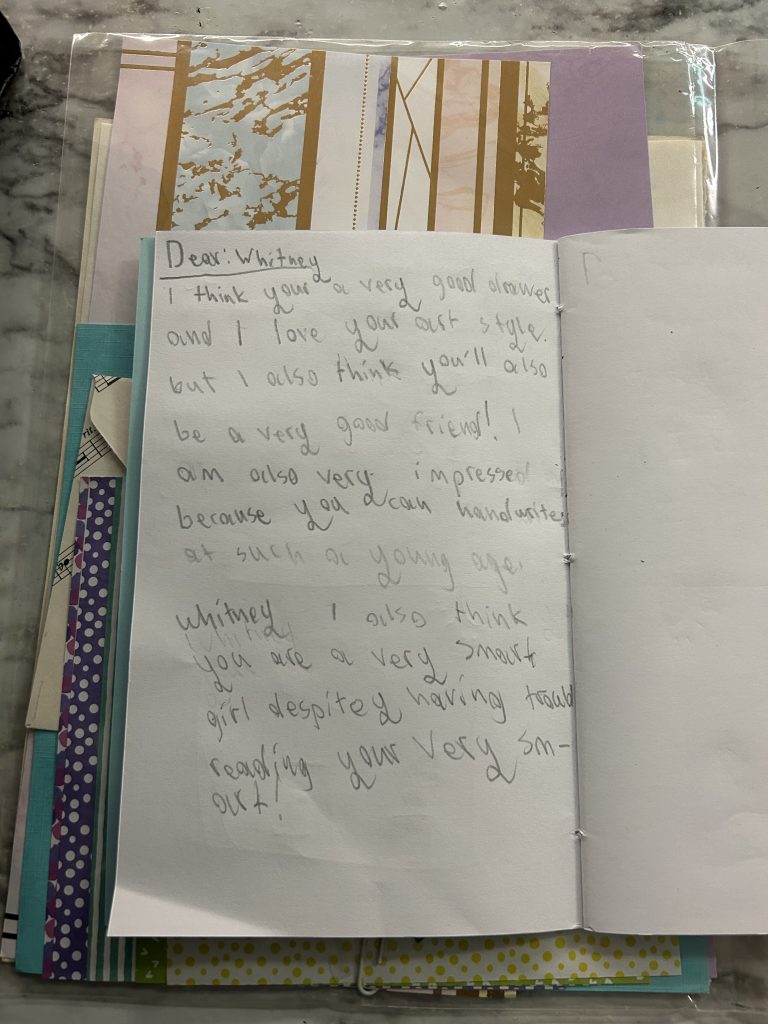 Dear: Whitney
I think your a very good drawer
and I love your art style.
but I also think you'll also
be a very good friend! I
am also very impressed
because you can handwrite
at such a young age.
whitney I also think
you are a very smart
girl despitey having troubl
reading your very sm-
art!